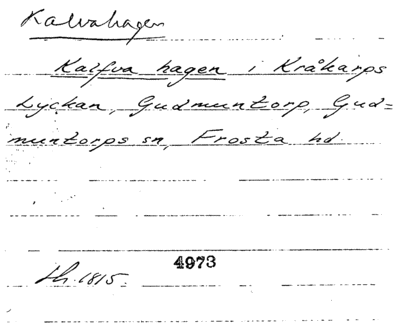 Kalvahagen
Kalfva hagen i Kråkarps
Lyckan, Gudmuntorp, Gud=
muntorps sn, Frosta hd
4973
Lh. 1815.